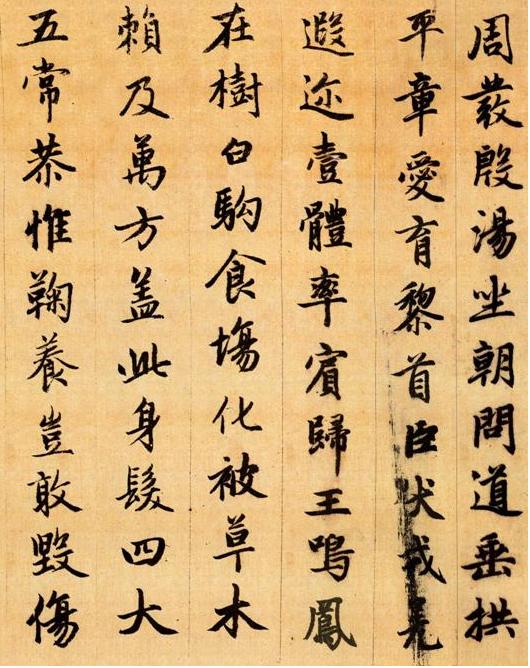 周發殷湯坐朝問道垂拱
平章愛育黎首臣伏戎羌
遐迩壹體率賓歸王鳴鳳
在樹白駒食塲化被草木
賴及萬方盖此身髮四大
五常恭惟鞠養豈敢毀傷